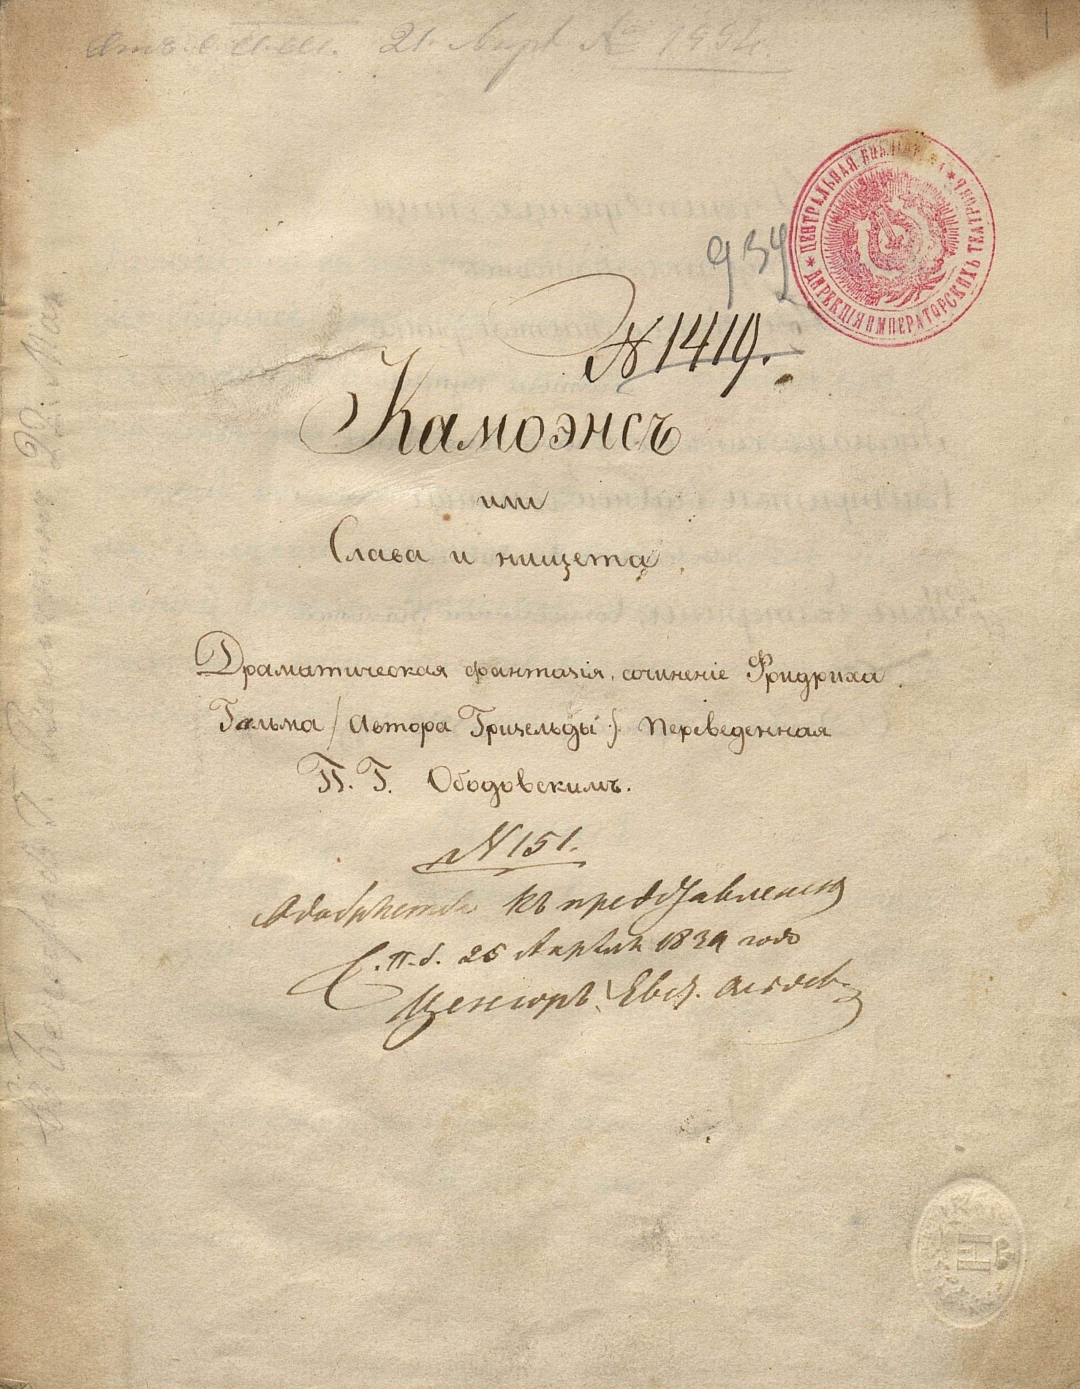 21. Апр. № 1994.
ЦЕНТРАЛЬНАЯ БИБЛІОТЕКА
ДИРЕКЦІЯ ИМПЕРАТОРСКИХЪ ТЕАТРОВЪ
934
№ 1419.
Камоэнсъ
или
Слава и нищета.
Драматическая фантазія, сочиненіе Фридриха
Гальма / Автора Гризельды / Переведенная
П. Г. Ободовскимъ.
№ 151.
Одобряется къ представленію
С.П.б. 25 Апрѣля 1839 года
Цензоръ Евст. Ольдекоп